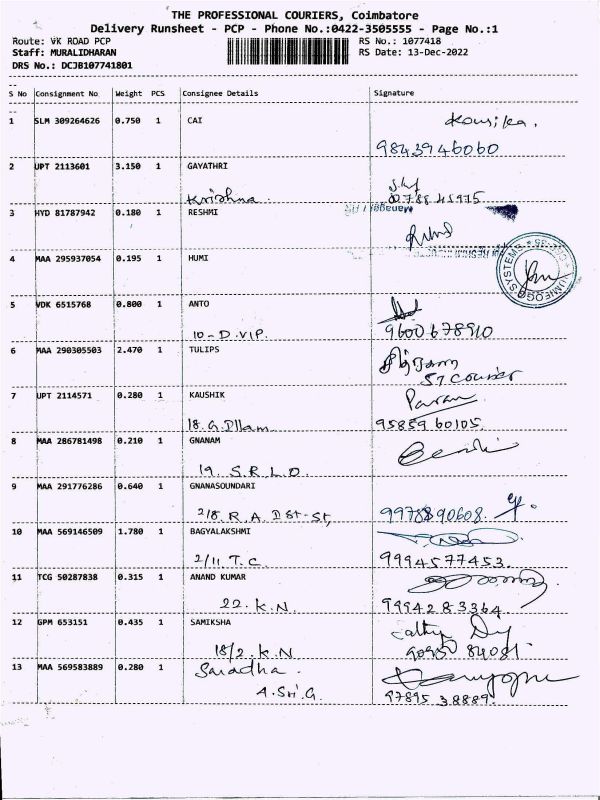 THE PROFESSIONAL COURIERS, Coimbatore
Delivery Runsheet - PCP - Phone No.:0422-3505555 - Page No.:1
Route: VK ROAD PCP RS No.: 1077418
Staff: MURALIDHARAN RS Date: 13-Dec-2022
DRS No.: DCJB107741801
S No Consignment No Weight PCS Consignee Details Signature
1 SLM 309264626 0.750 1 CAI Kousika.
9843946060
2 UPT 2113601 3.150 1 GAYATHRI
Krishna
3 HYD 81787942 0.180 1 RESHMI
4 MAA 295937054 0.195 1 HUMI
5 VDK 6515768 0.800 1 ANTO
10-D.V.I.P. 9600678910
6 MAA 290305503 2.470 1 TULIPS
ST Courier
7 UPT 2114571 0.280 1 KAUSHIK
18.G.Dllam 95859 60105
8 MAA 286781498 0.210 1 GNANAM
19. S.R.L.D.
9 MAA 291776286 0.640 1 GNANASOUNDARI
2/8. R.A. D St-St, 9978890608.
10 MAA 569146509 1.780 1 BAGYALAKSHMI
2/11. T.C. 9994577453.
11 TCG 50287838 0.315 1 ANAND KUMAR
22. K.N. 9994283364
12 GPM 653151 0.435 1 SAMIKSHA
18/2. K.N 84081
13 MAA 569583889 0.280 1 Saradha.
4. Sri G. 97895 38889.